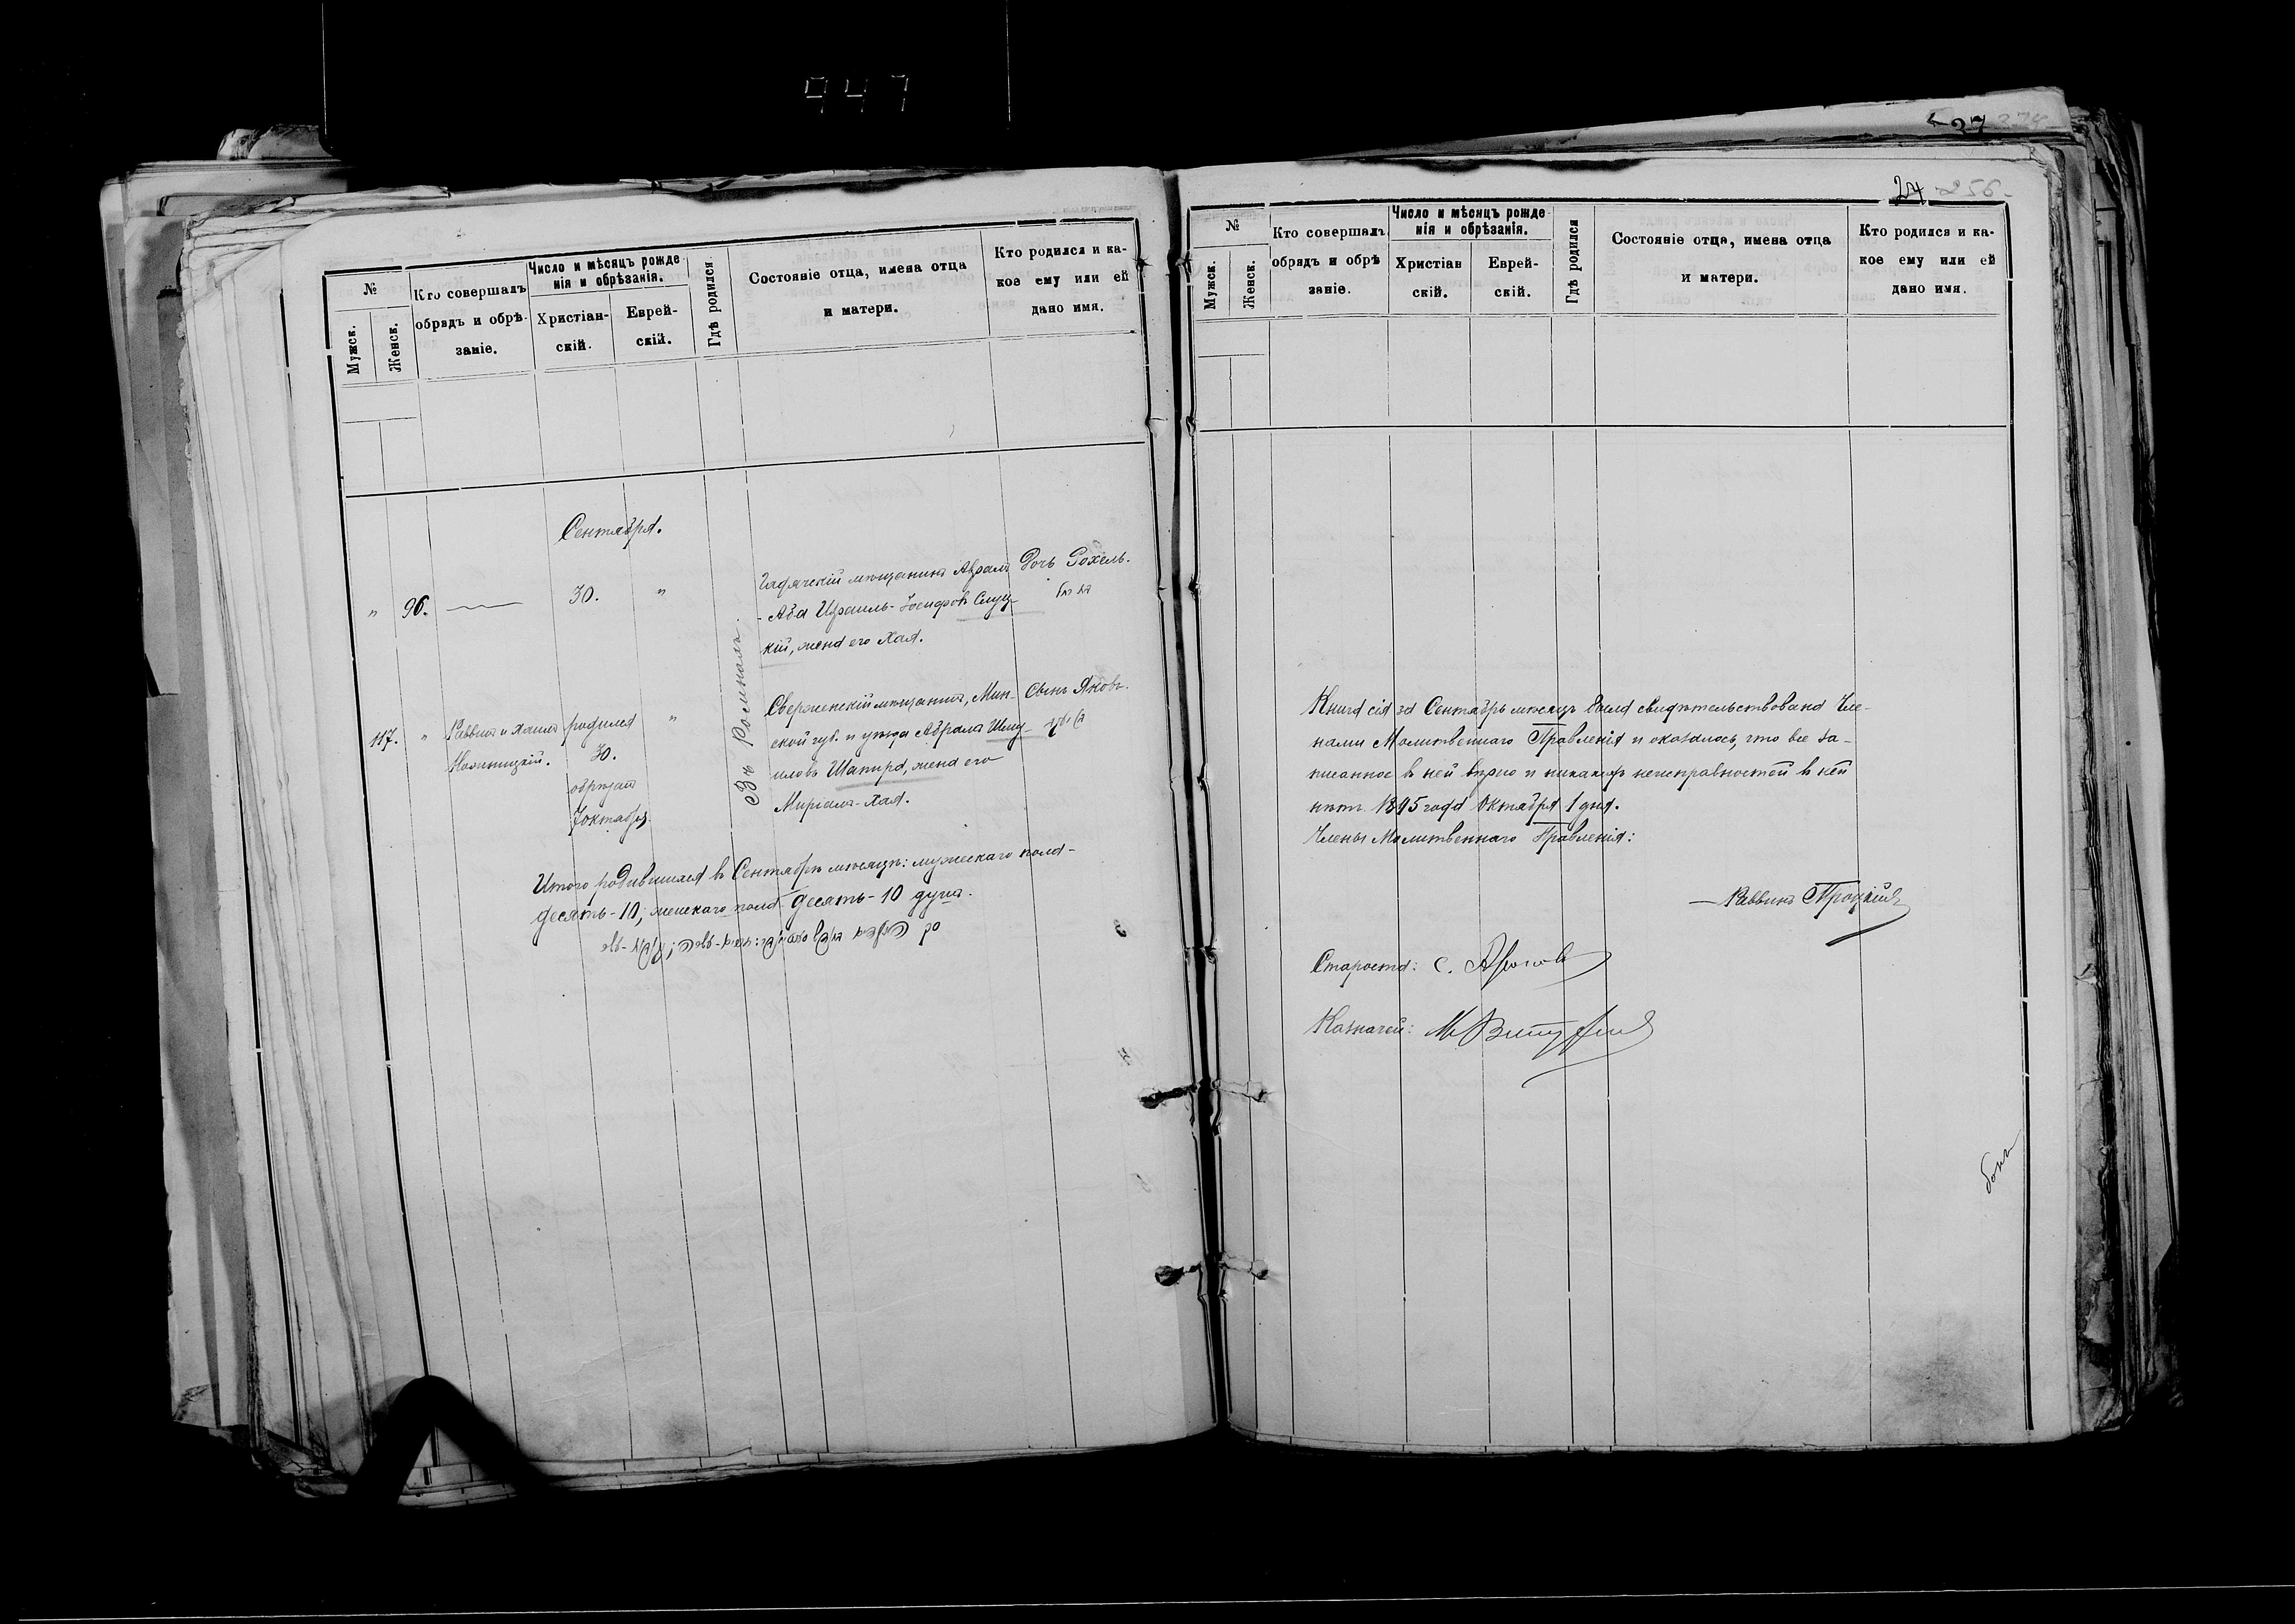 447
№
Мужск.
Женск.
Кто совершалъ
обрядъ и обрѣ-
заніе.
Число и мѣсяцъ рожде-
нія и обрѣзанія.
Христіан-
скій.
Еврей-
скій.
Гдѣ родился
Состояніе отца, имена отца
и матери.
Кто родился и ка-
кое ему или ей
дано имя.
Сентября.
" 96. — 30. "
Гадячскій мѣщанинъ Аврамъ
- Аба Израиль-Іосифовъ Слуц-
кій, жена его Хая.
Дочь Рохель.
רחל
Въ Ромнахъ.
117. "
Раввинъ и Хаимъ
родился
30.
обрѣзанъ
7 октября.
"
Сверженскій мѣщанинъ, Мин-
ской губ. и уѣзда Абрамъ Шму-
иловъ Шапиро, жена его
Миріамъ-Хая.
Сынъ Яковъ.
יעקב
Итого родившихся въ Сентябрѣ мѣсяцѣ: мужескаго пола-
десять-10; женскаго пола десять-10 душъ.
27
24 256
№
Мужск.
Женск.
Кто совершалъ
обрядъ и обрѣ
заніе.
Число и мѣсяцъ рожде
нія и обрѣзанія.
Христіан
скій.
Еврей-
скій.
Гдѣ родился
Состояніе отца, имена отца
и матери.
Кто родился и ка-
кое ему или ей
дано имя.
Книга сія за Сентябрь мѣсяцъ была свидѣтельствована Чле-
нами Молитвеннаго Правленія и оказалось, что все за-
писанное въ ней вѣрно и никакихъ неисправностей въ ней
нѣтъ. 1895 года Октября 1 дня.
Члены Молитвеннаго Правленія:
— Раввинъ Троцкій
Староста: С.
Казначей: М